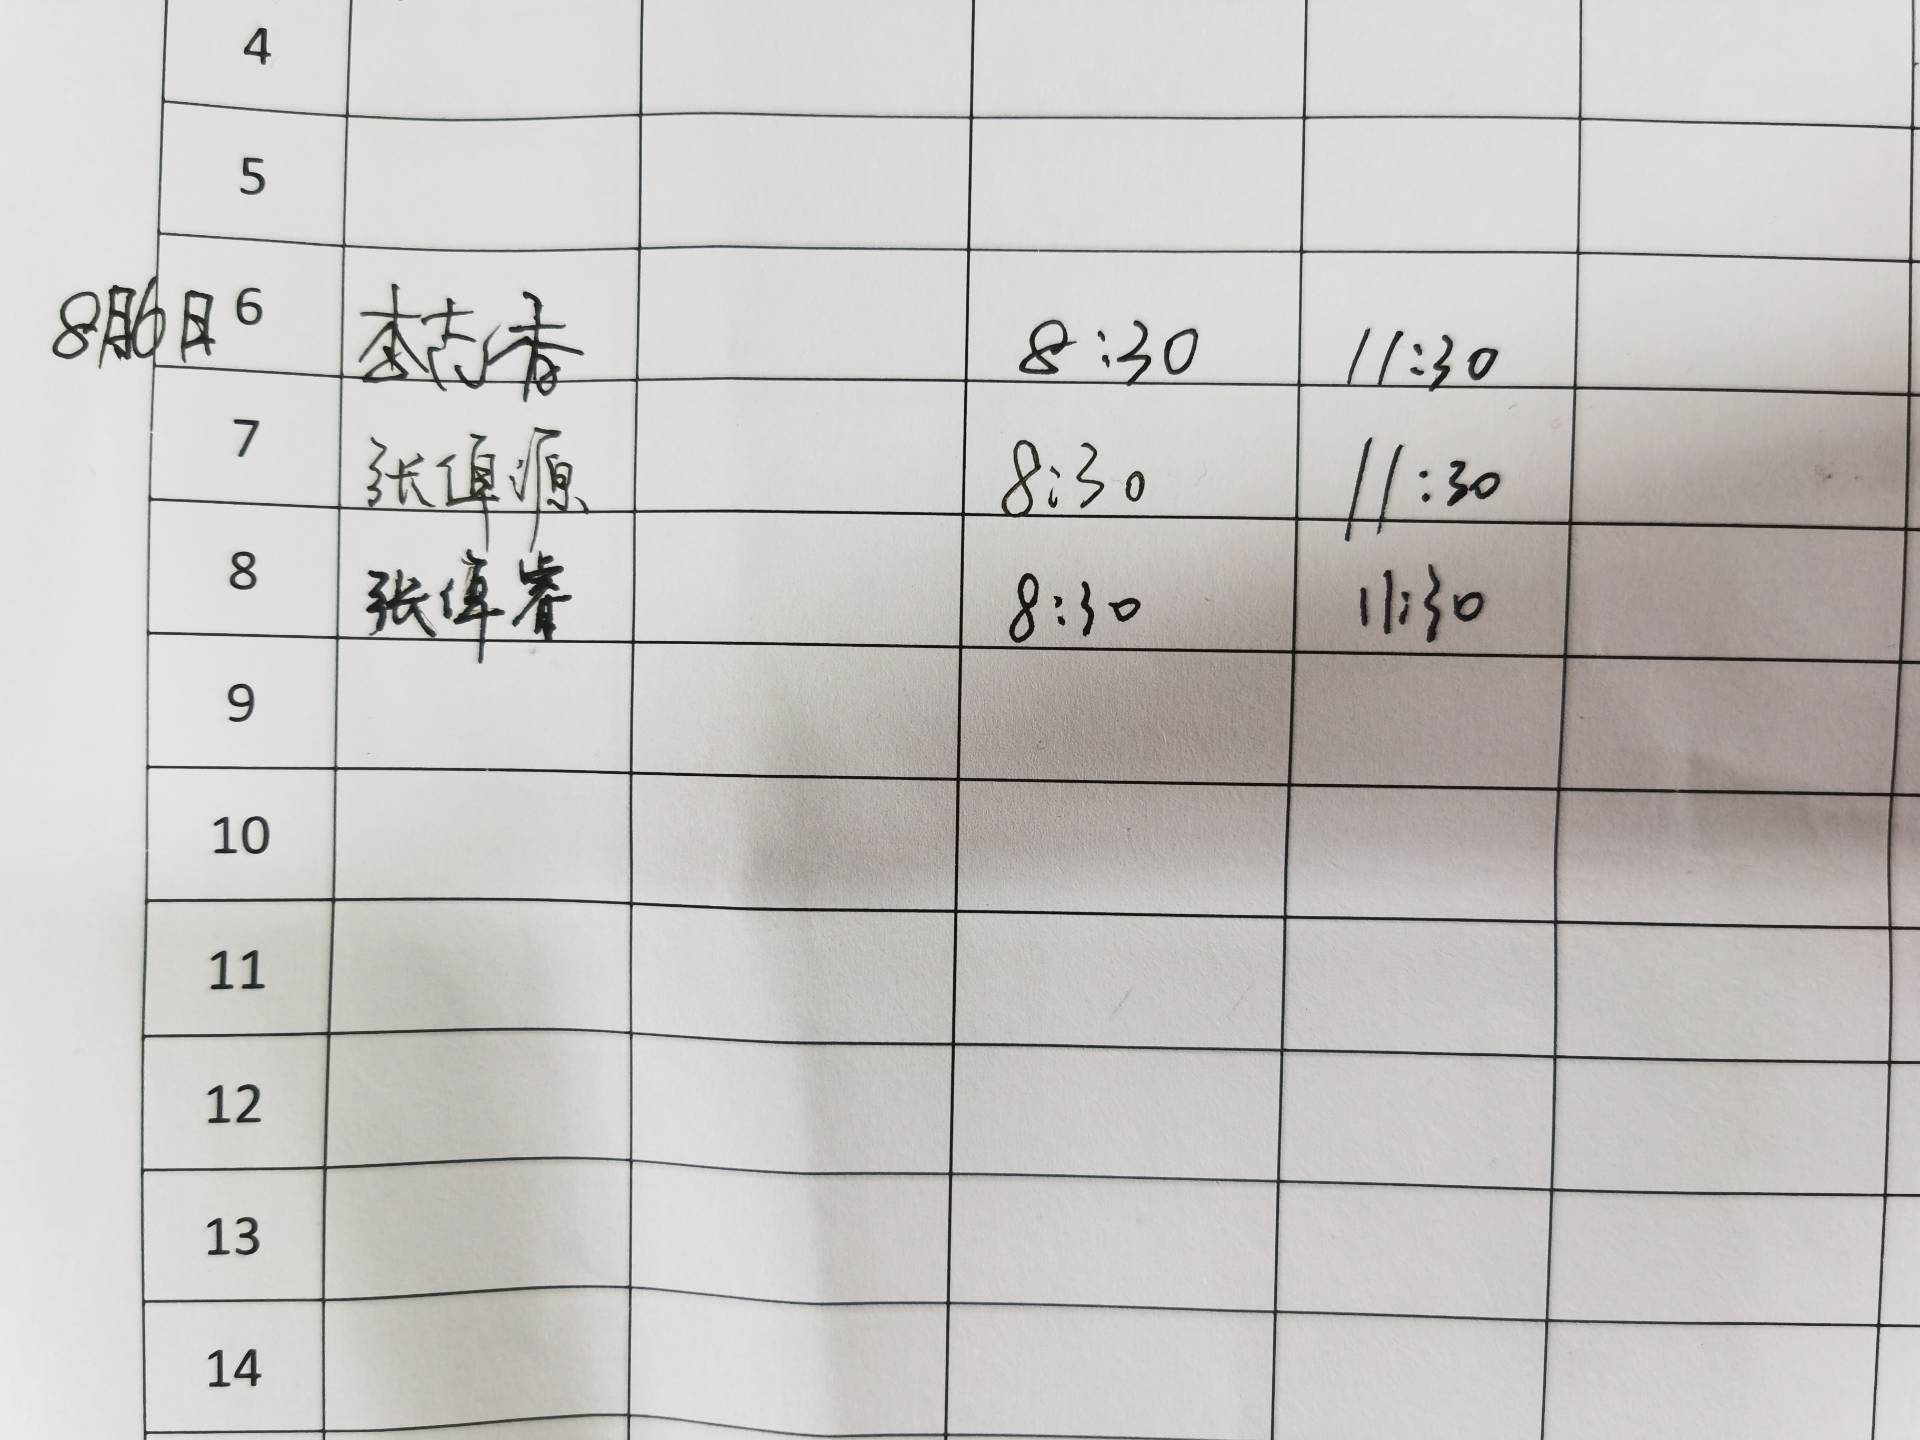 4
5
8月6日 6 李志香 8:30 11:30
7 张倬源 8:30 11:30
8 张倬睿 8:30 11:30
9
10
11
12
13
14